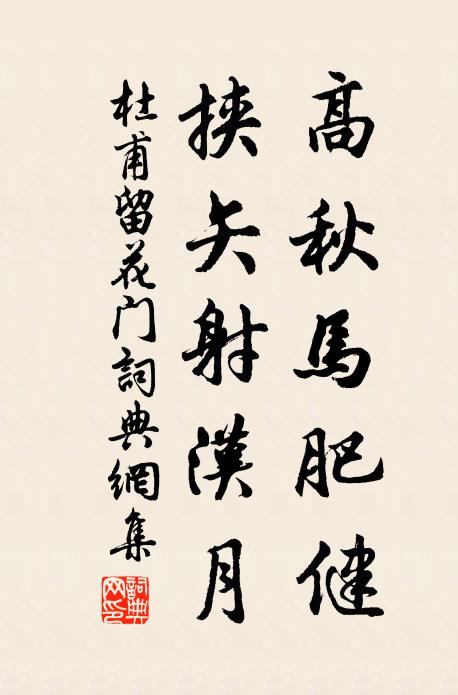 高秋馬肥健
挾矢射漢月
杜甫留花门詞典網集
詞典网印